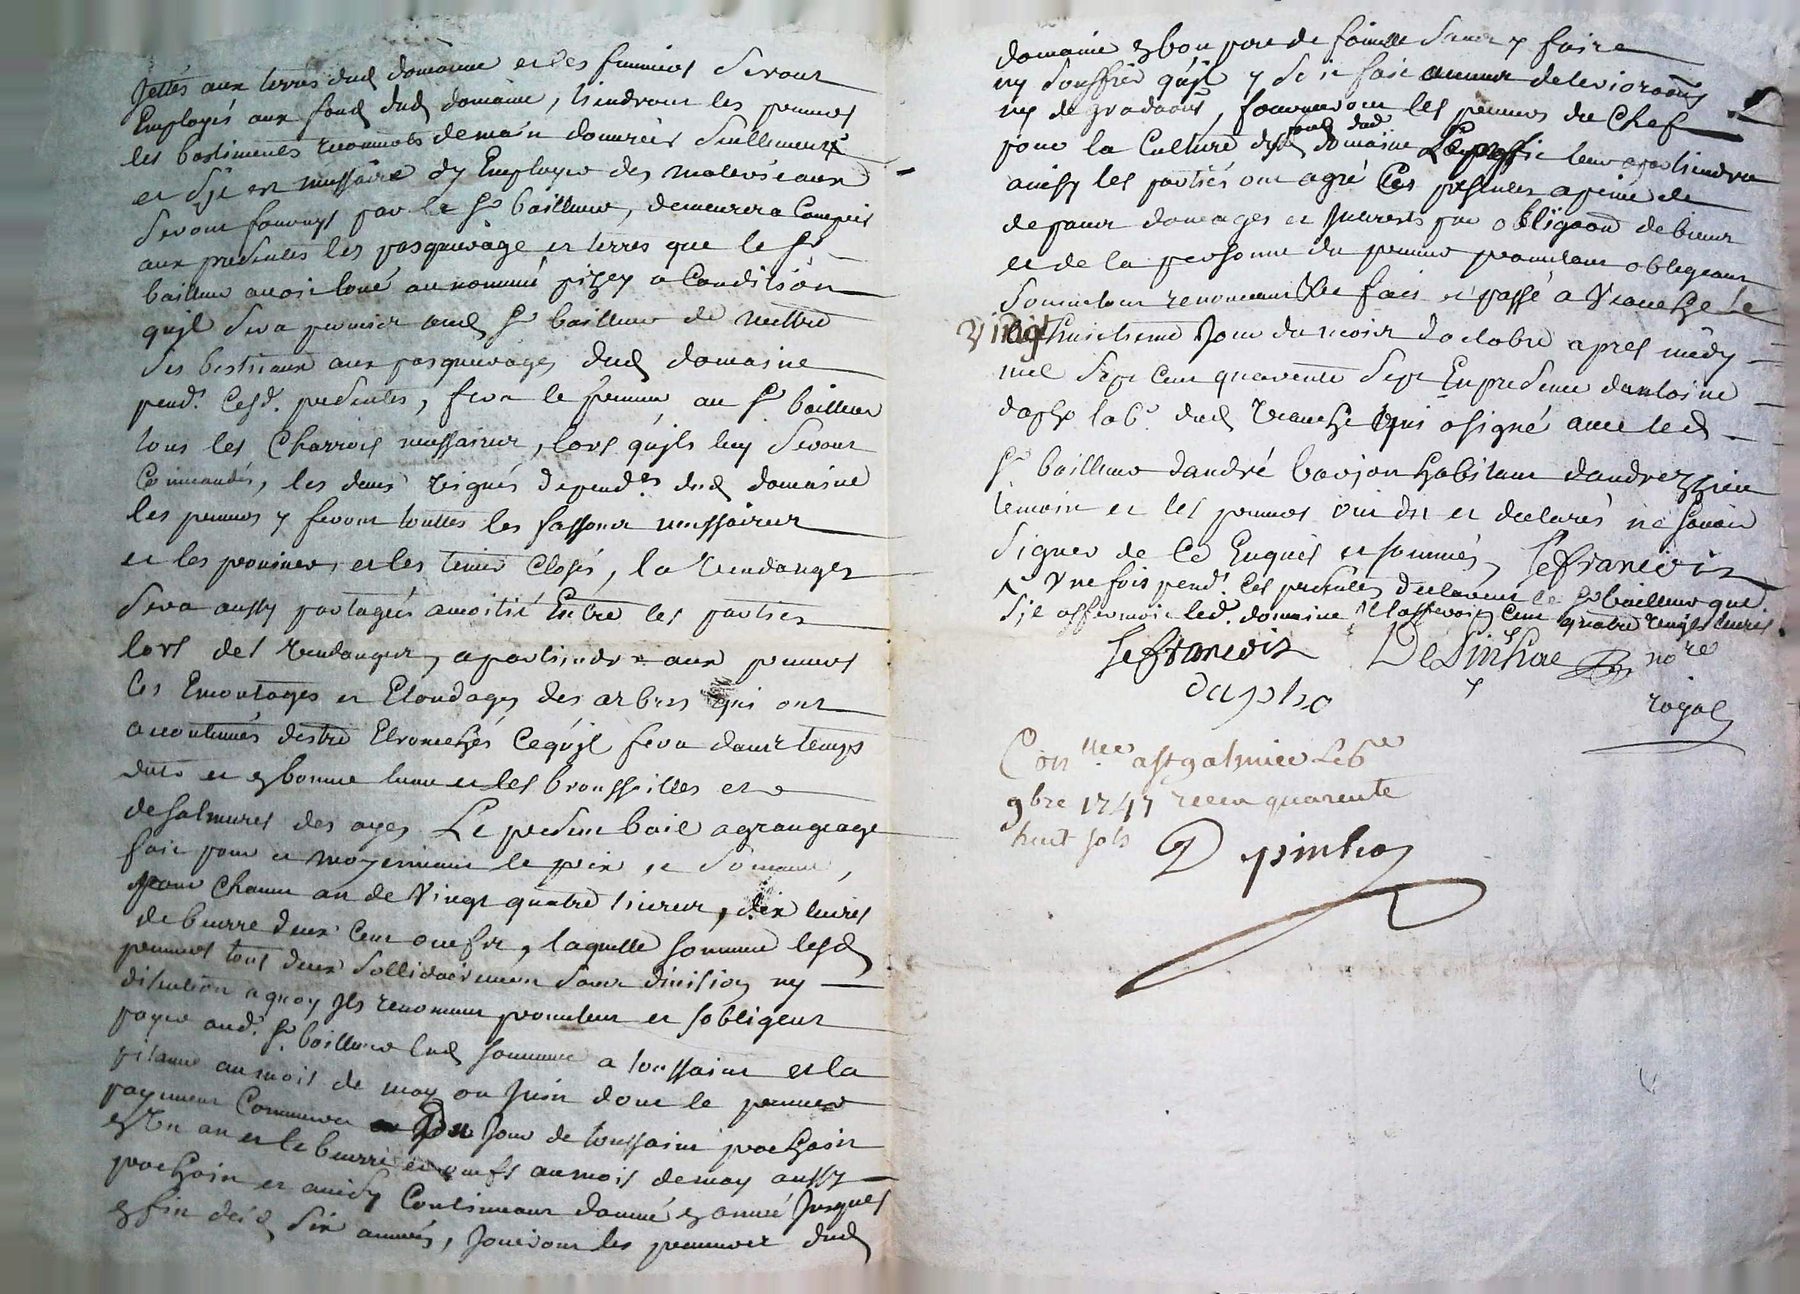 Jettés aux terres dud domaine et les fumiers seront
Employés aux fond dud domaine, tiendront les preneurs
les bastiments recouverts de main d'ouvriers seullement
et s'il est nessaire dy Employer des materieaux
seront fournys par le Sr bailleur, demeurera Compris
aux presentes les pasqueurage et terres que le Sr
bailleur avoit loué au nommé pizey a Condition
quil sera permier aud Sr bailleur de mettre
ses bestiaux aux pasqueurages dud domaine
pend.t Cesd. presentes, fera le preneur au Sr bailleur
tous les Charrois nessaires, lors quils luy seront
Commandés, les deux vignes depend.tes dud domaine
les preneurs y feront touttes les fassons nessaires
et les provines, et les tenir Closes, la vendange
sera aussy partagée a moitié Entre les parties
lors des vendanges, apartiendra aux preneurs
les Emontages et Elondages des arbres qui ont
acoutumés destre Ebranchés Ce quil fera dans temps
dub et en bonne lune et les broussailles et
desalmures des ayes Le present bail a grangeage
fait pour et moyennant le prix et somme,
pour Chacun an de Vingt quatre livres, dix livres
de beurre deux Cent oeufs, laquelle somme lesd
preneurs tous deux sollidairement sans division ny
discution a quoy ils renoncent promettent et sobligent
payer aud. Sr bailleur lad somme a toussaint et la
pitance au mois de may ou Juin dont le premier
payement Commencera Du Jour de toussaint prochain
en Un an et le beurre et oeufs au mois de may aussy
prochain et ainsy Continuant dannée en année Jusques
en fin desd six années, Jouiront les preneurs dud
domaine en bon pere de famille sans y faire
ny souffrir quil y soit fait aucune deterioraons
ny degradaons, fourniront les preneurs du Chef
fond dud
pour la Culture dud domaine Le proffit leur apartiendra
ainsy les parties ont agré Ces presentes a peine de
de tous domages et Interests par obligaon de biens
et de la personne du preneur promettant obligeant
soumettant renonceant &c fait et passé a Veauche Le
Vingt huictieme Jour du mois doctobre apres midy
mil sept cent quarente sept En presence dantoine
dapho lab.r dud Veauche qui a signé avec led
Sr bailleur dandré barjon habitant dandrezieu
temoin et les preneurs ont dit et declarés ne savoir
signer de Ce Enquis et sommés Lefrancois
Une fois pend.t Ces presentes declarent le Sr bailleur que
s'il affermoit led. domaine il laisseroit Cent quatre vingts livres
Lefrancois Desinhac nore
dapho royal
Con.llee a st galmier Le 6e
9bre 1747 receu quarente
huit sols
Depinhac